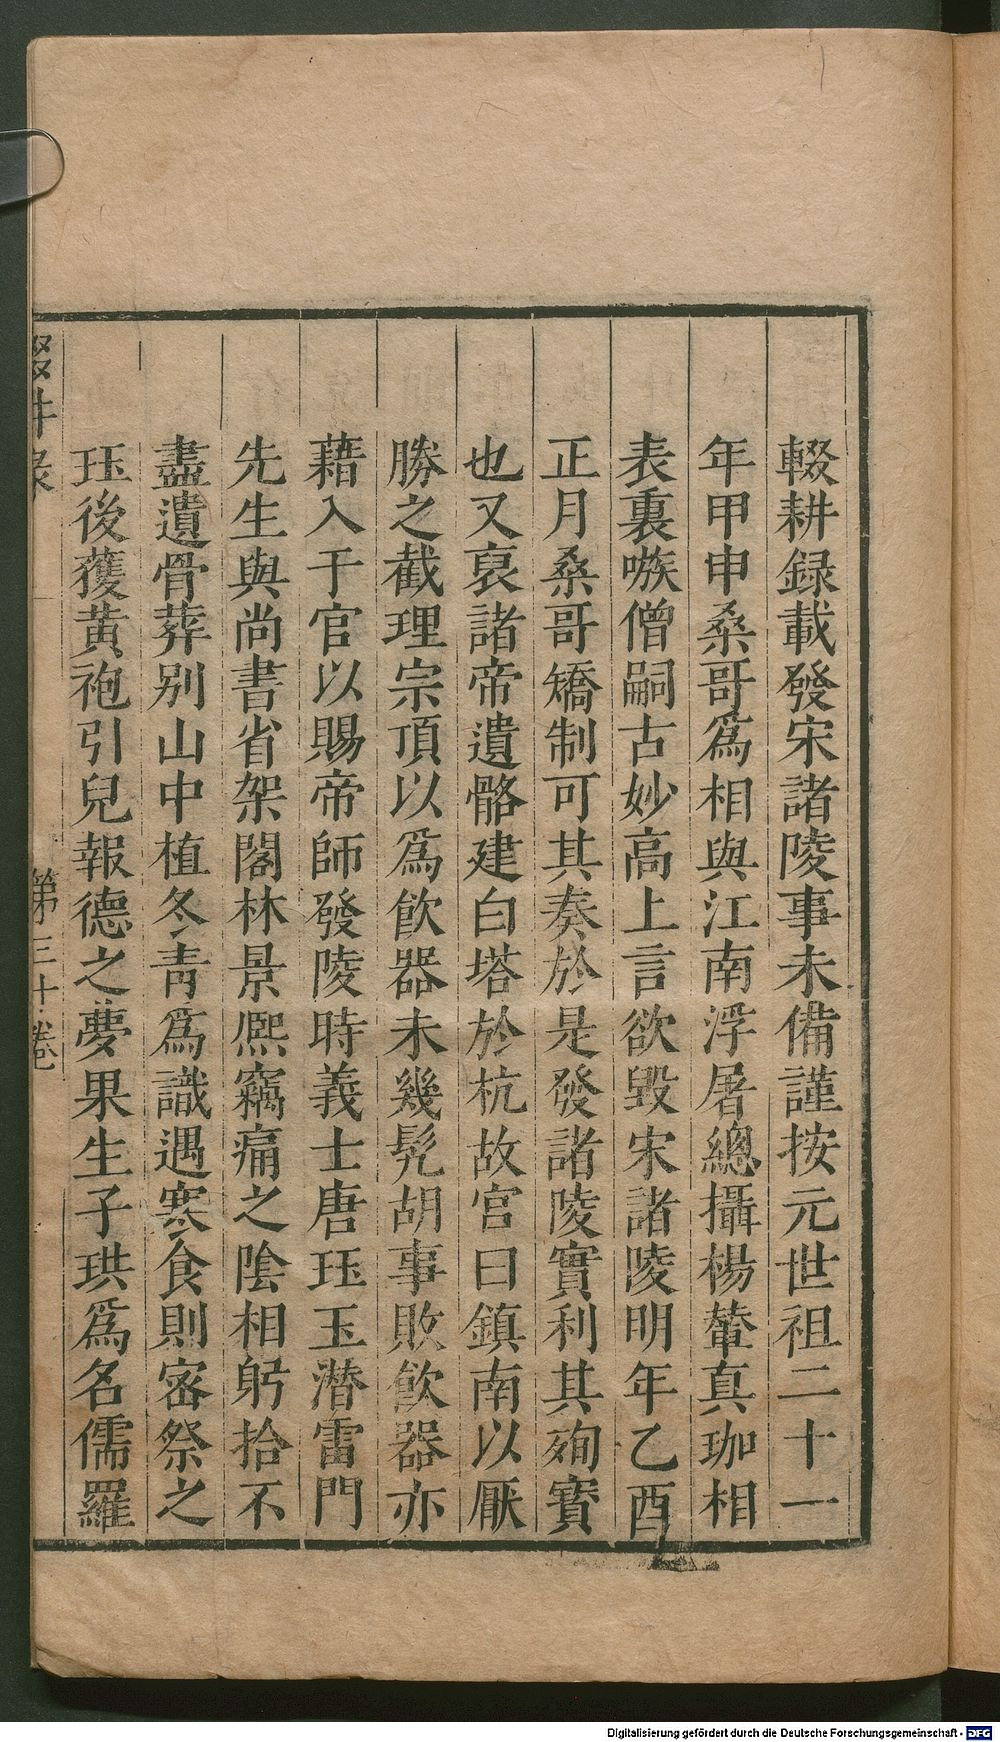 輟耕録載發宋諸陵事未備謹按元世祖二十一
年甲申桑哥爲相與江南浮屠總攝楊輦真珈相
表裏嗾僧嗣古妙高上言欲毀宋諸陵明年乙酉
正月桑哥矯制可其奏於是發諸陵實利其殉寳
也又裒諸帝遺骼建白塔於杭故宫曰鎮南以厭
勝之截理宗頂以爲飲器未幾髠胡事敗飲器亦
藉入于官以賜帝師發陵時義士唐珏玉潜雷門
先生與尚書省架閣林景熈竊痛之陰相躬拾不
盡遺骨葬别山中植冬青爲識遇寒食則密祭之
珏後獲黄袍引兒報德之夢果生子珙爲名儒羅
輟耕録
第三十卷
Digitalisierung gefördert durch die Deutsche Forschungsgemeinschaft - DFG